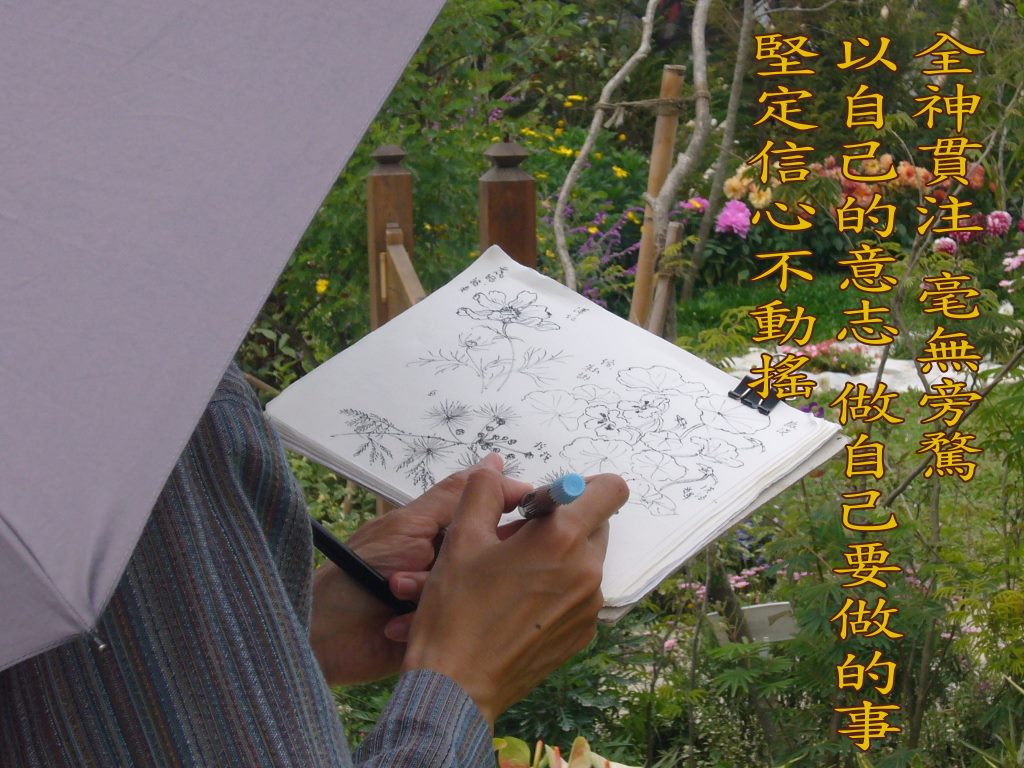 全神貫注 毫無旁騖
以自己的意志 做自己要做的事
堅定信心不動搖